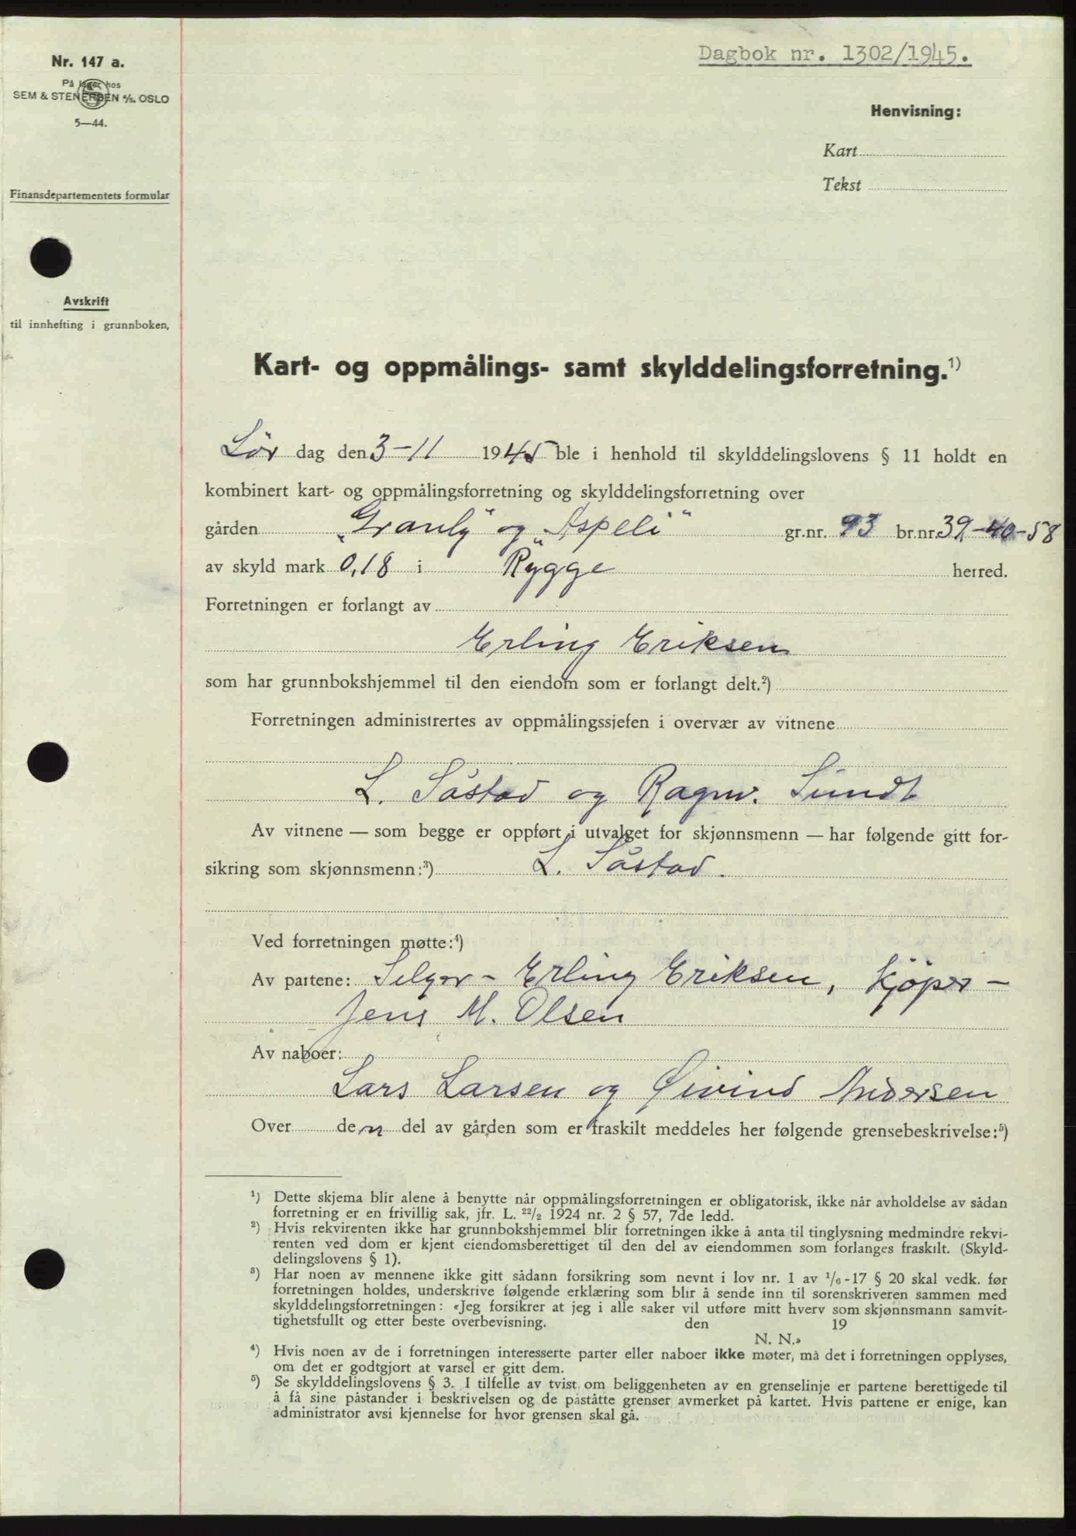 Nr. 147 a.
På lager hos
SEM & STENERSEN A/S. OSLO
5—44.
Finansdepartementets formular
Avskrift
til innhefting i grunnboken,
Dagbok nr. 1302/1945.
Henvisning:
Kart
Tekst
Kart- og oppmålings- samt skylddelingsforretning.¹)
Lør dag den 3-11 1945 ble i henhold til skylddelingslovens § 11 holdt en
kombinert kart- og oppmålingsforretning og skylddelingsforretning over
gården „Granly" og „Aspeli" gr.nr. 93 br.nr. 39-40-58
av skyld mark 0,18 i Rygge herred.
Forretningen er forlangt av
Erling Eriksen
som har grunnbokshjemmel til den eiendom som er forlangt delt.²)
Forretningen administrertes av oppmålingssjefen i overvær av vitnene
L. Såstad og Ragnv. Sundt
Av vitnene — som begge er oppført i utvalget for skjønnsmenn — har følgende gitt for-
sikring som skjønnsmenn:³) L. Såstad.
Ved forretningen møtte:⁴)
Av partene: Selger - Erling Eriksen, kjøper -
Jens M. Olsen
Av naboer:
Lars Larsen og Øivind Andersen
Over den del av gården som er fraskilt meddeles her følgende grensebeskrivelse:⁵)
¹) Dette skjema blir alene å benytte når oppmålingsforretningen er obligatorisk, ikke når avholdelse av sådan
forretning er en frivillig sak, jfr. L. ²²/₂ 1924 nr. 2 § 57, 7de ledd.
²) Hvis rekvirenten ikke har grunnbokshjemmel blir forretningen ikke å anta til tinglysning medmindre rekvi-
renten ved dom er kjent eiendomsberettiget til den del av eiendommen som forlanges fraskilt. (Skyld-
delingslovens § 1).
³) Har noen av mennene ikke gitt sådann forsikring som nevnt i lov nr. 1 av ¹/₆-17 § 20 skal vedk. før
forretningen holdes, underskrive følgende erklæring som blir å sende inn til sorenskriveren sammen med
skylddelingsforretningen: «Jeg forsikrer at jeg i alle saker vil utføre mitt hverv som skjønnsmann samvit-
tighetsfullt og etter beste overbevisning. den 19
N. N.»
⁴) Hvis noen av de i forretningen interesserte parter eller naboer ikke møter, må det i forretningen opplyses,
om det er godtgjort at varsel er gitt dem.
⁵) Se skylddelingslovens § 3. I tilfelle av tvist om beliggenheten av en grenselinje er partene berettigede til
å få sine påstander i beskrivelsen og de påståtte grenser avmerket på kartet. Hvis partene er enige, kan
administrator avsi kjennelse for hvor grensen skal gå.